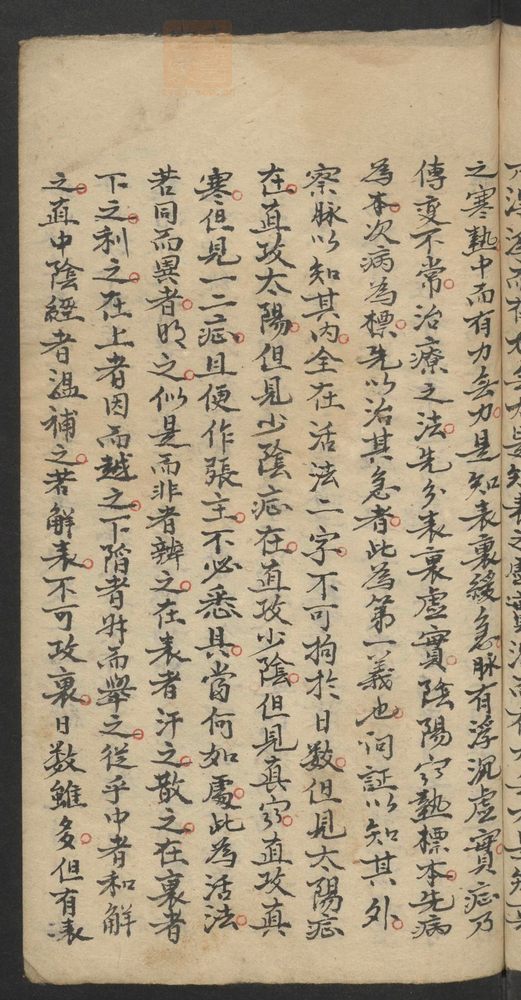 之寒熱中而有力無力是知表裏緩急脉有浮沉虛實症乃
傳变不常治療之法先分表裏虛實陰陽寒熱標本先病
為本次病為標先以治其急者此為第一義也问証以知其外
察脉以知其内全在活法二字不可拘於日数但見太陽症
在直攻太陽但見少陰症在直攻少陰但見真寒直攻真
寒但見一二症且便作張主不必悉具當何如處此為活法
若同而異者明之似是而非者辨之在表者汗之散之在裏者
下之利之在上者因而越之下陷者升而舉之從乎中者和解
之直中陰經者温補之若解表不可攻裏日数雖多但有表